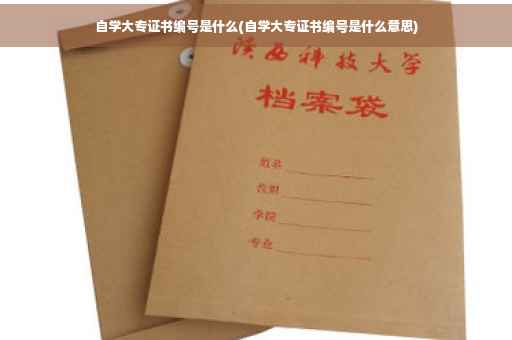 自学大专证书编号是什么(自学大专证书编号是什么意思)
陕西科技大学
档案袋
姓名
学院
专业